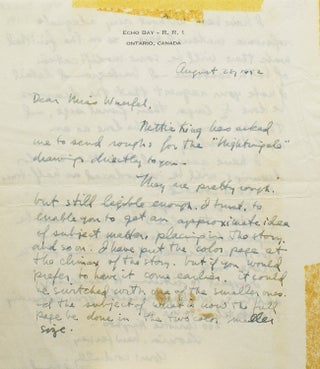 ECHO BAY – R. R. 1
ONTARIO, CANADA
August 27, 1952
Dear Miss
Nettie King has asked
me to send roughs for the "Nightingale"
drawings directly to you.
They are pretty rough,
but still legible enough, I trust, to
enable you to get an approximate idea
of subject matter, placing in the story
and so on. I have put the color page at
the climax of the story, but if you would
prefer to have it come earlier, it could
be switched with one of the smaller ones
and the subject of what is now the full
page be done in the two color smaller
size.